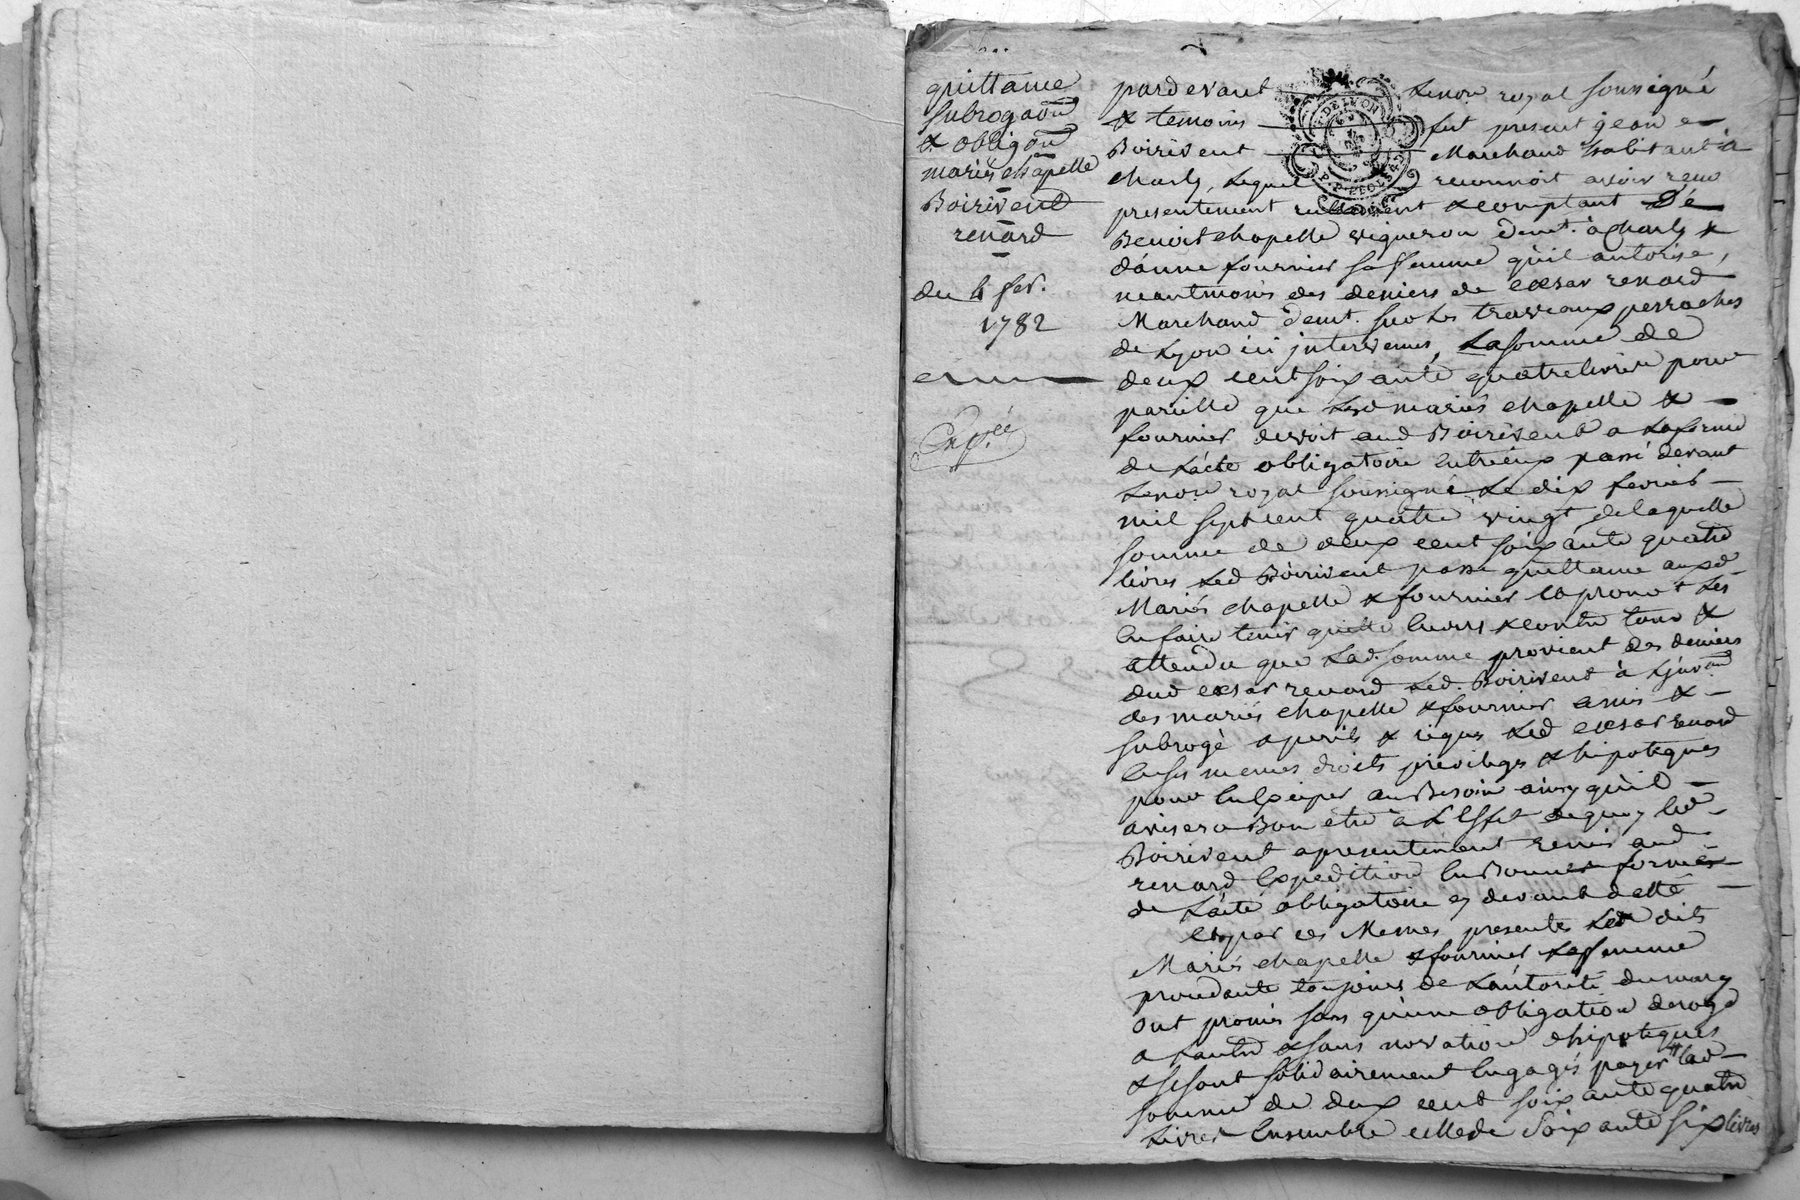 quittance
subrogaôn
& obligaôn
mariés chapelle
Boirivent
renard
du 4 fer.
1782
Exp.ée
pardevant Lenore. royal soussigné
& temoins fut present jean
Boirivent Marchand habitant à
charly, Lequel reconnoit avoir recu
presentement réellement & comptant De
Benoit chapelle vigneron demt. à Charly &
d'anne fournier sa femme qu'il autorise,
neantmoins des deniers de cesar renard
Marchand demt. sur Les travaux perraches
de Lyon ici intervenu, La somme de
deux cent soixante quatre livres pour
pareille que Lesd mariés chapelle &
fournier devoit aud Boirivent a La forme
de L'acte obligatoire entr'eux passé devant
Lenore royal soussigné Le dix fevrier
mil sept cent quatre vingt, de laquelle
somme de deux cent soixante quatre
livres Led Boirivent passe quittance auxd
Mariés chapelle & fournier et promet Les
en faire tenir quitte envers & contre tous &
attendu que Lad. somme provient des deniers
dud cesar renard Led. Boirivent à
des mariés chapelle & fournier a mis &
subrogé a perils & riques Led cesar renard
en ses memes droits privileges & hipoteques
pour en exciper au Besoin ainsy qu'il
avisera Bon etre à L'effet de quoy led
Boirivent a presentement remis aud
renard Expedition en Bonne forme
de L'acte obligatoire cy devant datté
Et par ces Memes presentes Les dits
Mariés chapelle & fournier La femme
procedante toujours de L'autorité du mary
ont promis sans qu'une obligation deroge
a L'autre & sans novation d'hipoteques
& se sont solidairement engagés payer lad
somme de deux cent soixante quatre
Livres Ensemble celle de soixante six livres
DE LYON